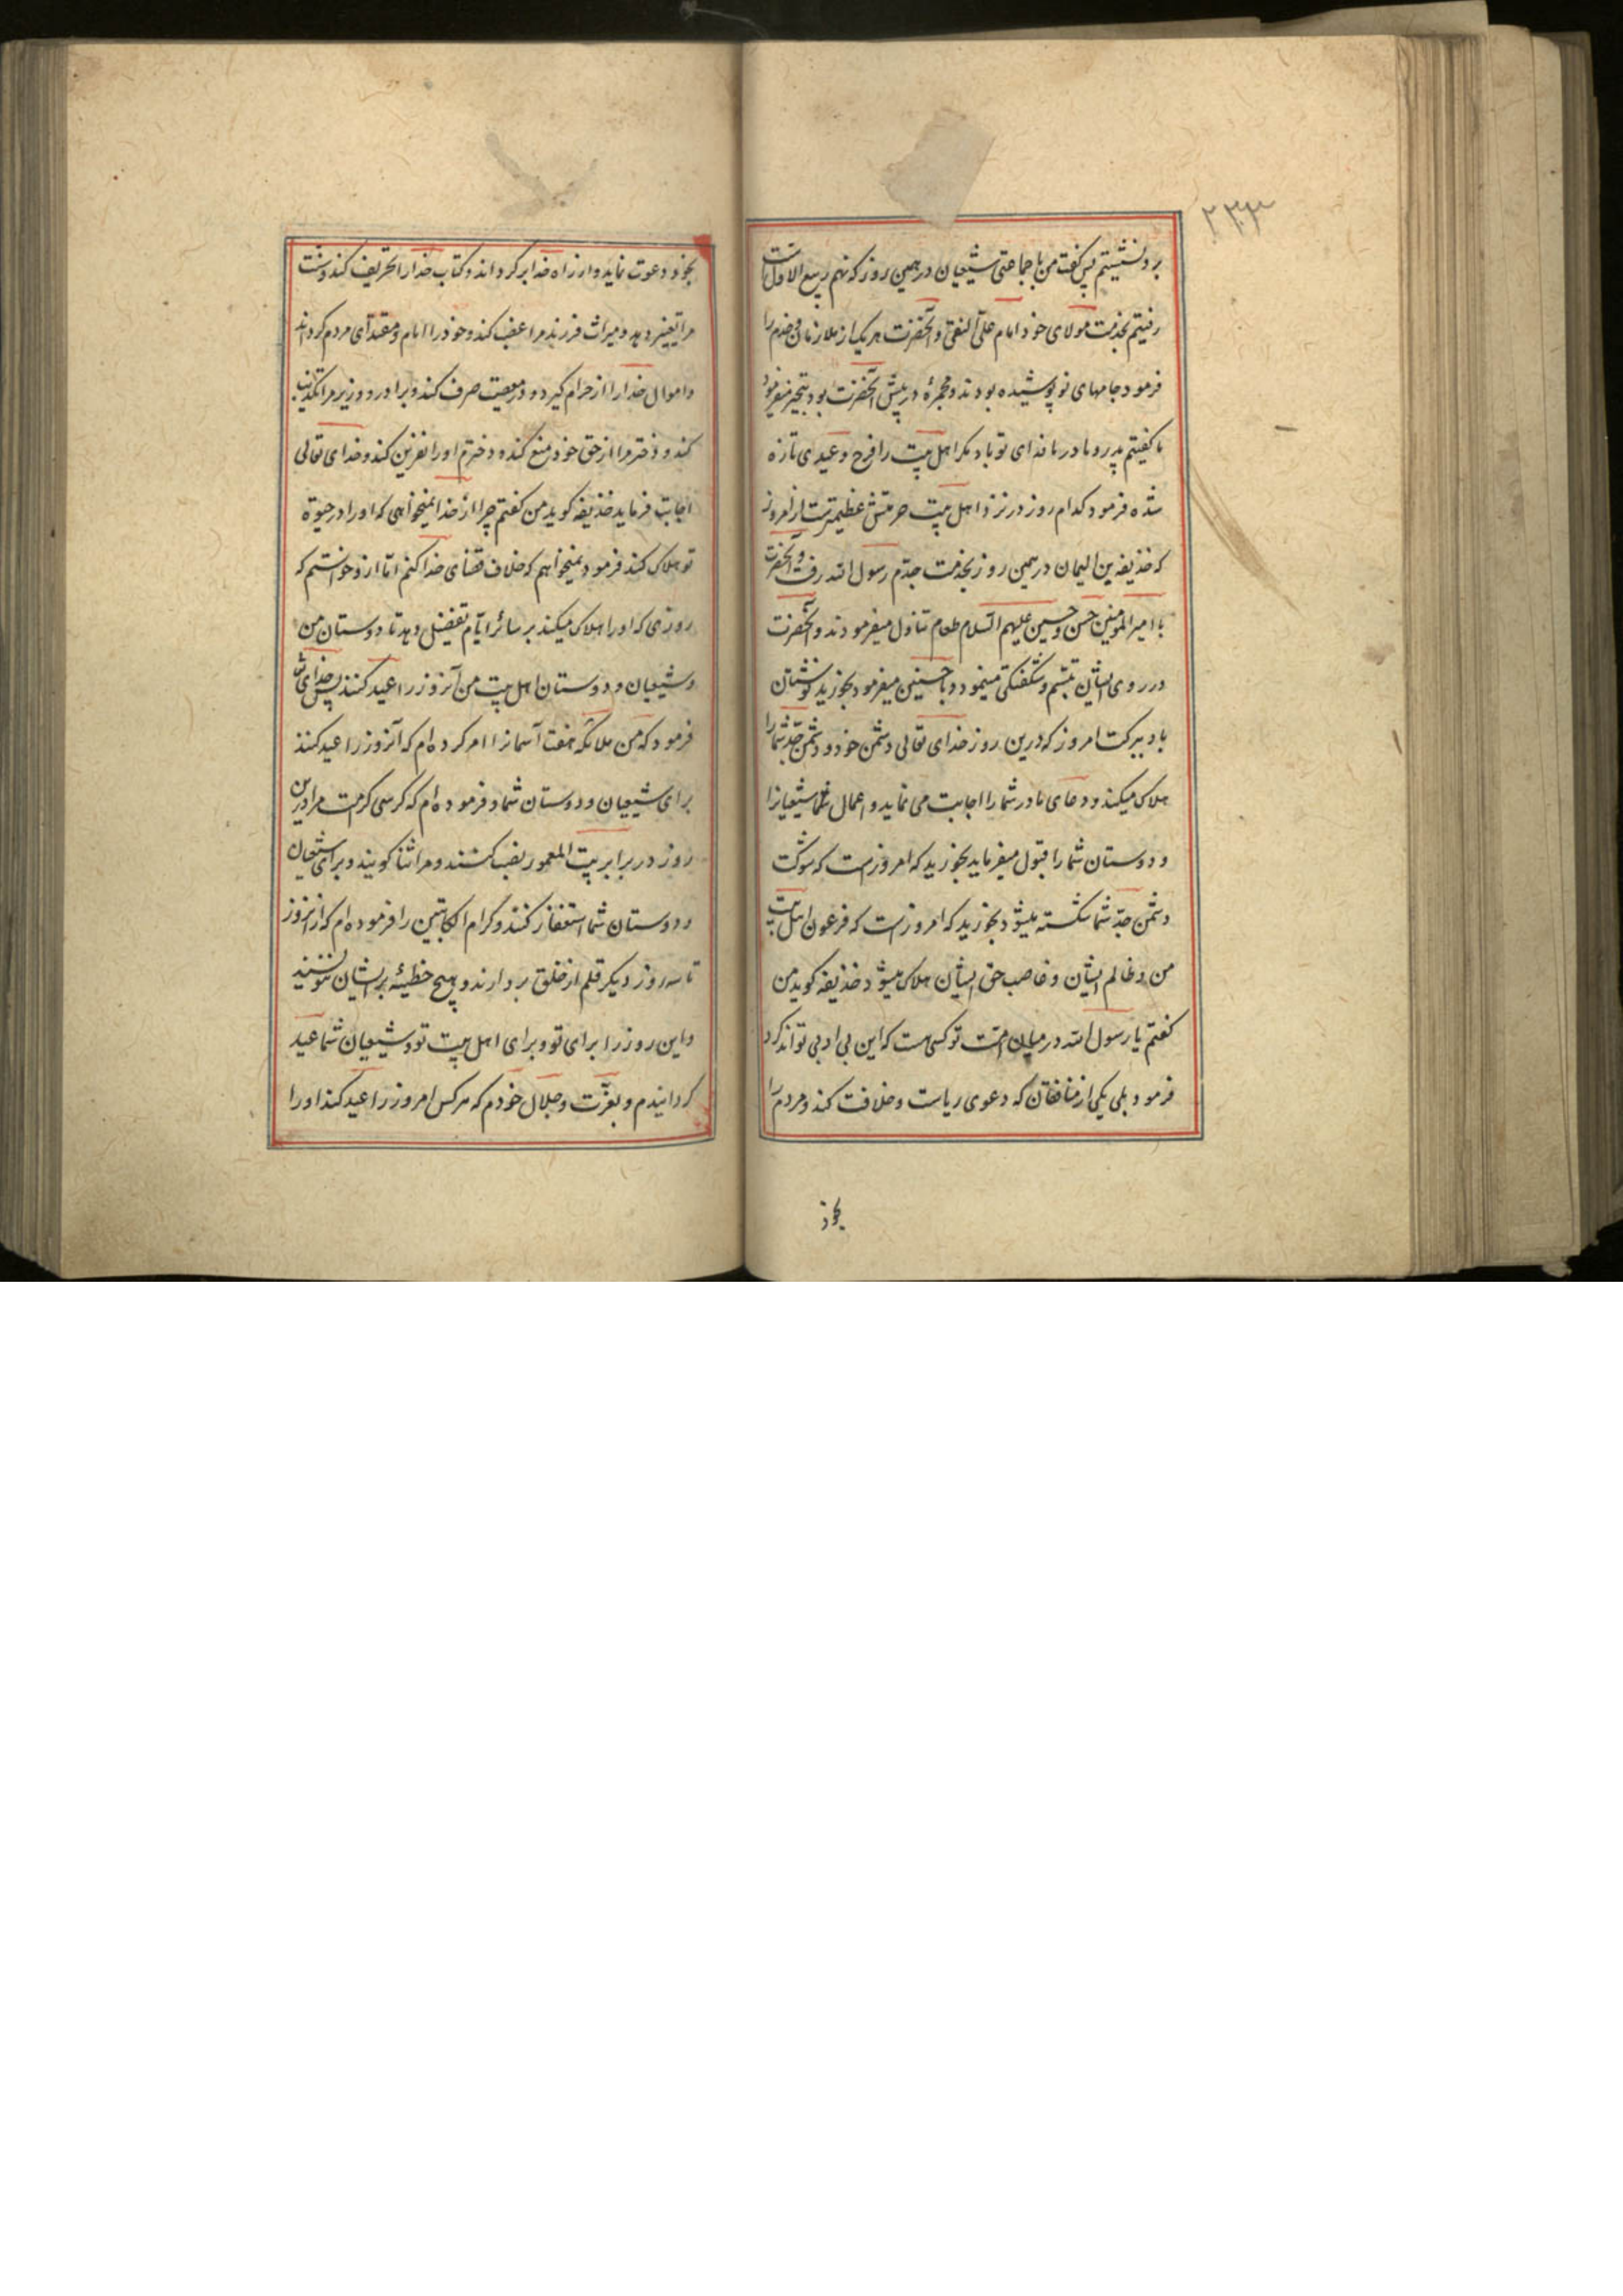 ۲۳۳
بر دنشستیم پس گفت من با جماعتی شیعیان در همین روز که نهم ربیع الاول است
رفتیم بخدمت مولای خود امام علی النقی و آنحضرت هر یک از ملازمان و خدم را
فرموده جامهای نو پوشیده بودند و مجمرهٔ در پیش آنحضرت بود تبخیر میفرمود
ما گفتیم پدر و مادر ما فدای تو باد مگر اهل بیت را فرح و عیدی تازه
شده فرمود کدام روز در نزد اهل بیت حرمتش عظیمترست از امروز
که حذیفه بن الیمان در همین روز بخدمت جدم رسول الله رفت و آنحضرت
با امیر المومنین حسن و حسین علیهم السلام طعام تناول میفرمودند و آنحضرت
در روی ایشان تبسم و شگفتگی مینمود و با حسنین میفرمود بخورید نوشتان
باد ببرکت امروز که درین روز خدای تعالی دشمن خود و دشمن جد شما را
هلاک میکند و دعای مادر شما را اجابت می نماید و اعمال شما شیعیانرا
و دوستان شما را قبول میفرماید بخورید که امروزست که شوکت
دشمن جد شما شکسته میشود بخورید که امروزست که فرعون اهل بیت
من و ظالم ایشان و غاصب حق ایشان هلاک میشود حذیفه گوید من
گفتم یا رسول الله در میان امت تو کسی هست که این بی ادبی تواند کرد
فرمود بلی یکی از منافقان که دعوی ریاست و خلافت کند و مردم را
بخود
بخود دعوت نماید و از راه خدا برگرداند و کتاب خدا را تحریف کند و سنت
مرا تغییر دهد و میراث فرزند مرا غصب کند و خود را امام و مقتدای مردم گرداند
و اموال خدا را از حرام گیرد و در معصیت صرف کند و برادر و وزیر مرا تکذیب
کند و دختر مرا از حق خود منع کند و دخترم او را نفرین کند و خدای تعالی
اجابت فرماید حذیفه گوید من گفتم چرا از خدا نمیخواهی که او را در حیوة
تو هلاک کند فرمود نمیخواهم که خلاف قضای خدا کنم اما ازو خواستم که
روزی که او را هلاک میکند بر سائر ایام تفضیل دهد تا دوستان من
و شیعیان و دوستان اهل بیت من آنروز را عید کنند پس خدای تعالی
فرمود که من ملائکه هفت آسمانرا امر کرده ام که آنروز را عید کنند
برای شیعیان و دوستان شما و فرموده ام که کرسی کرمت مرا درین
روز در برابر بیت المعمور نصب کنند و مرا ثنا گویند و برای شیعیان
و دوستان شما استغفار کنند و کرام الکاتبین را فرموده ام که از انروز
تا سه روز دیگر قلم از خلق بردارند و هیچ خطیئه بر ایشان ننویسند
و این روز را برای تو و برای اهل بیت تو و شیعیان شما عید
گردانیدم و بعزت و جلال خودم که هر کس امروز را عید کند او را